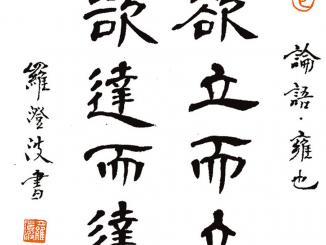 論語·雍也
欲立而立
欲達而達
羅澄波書